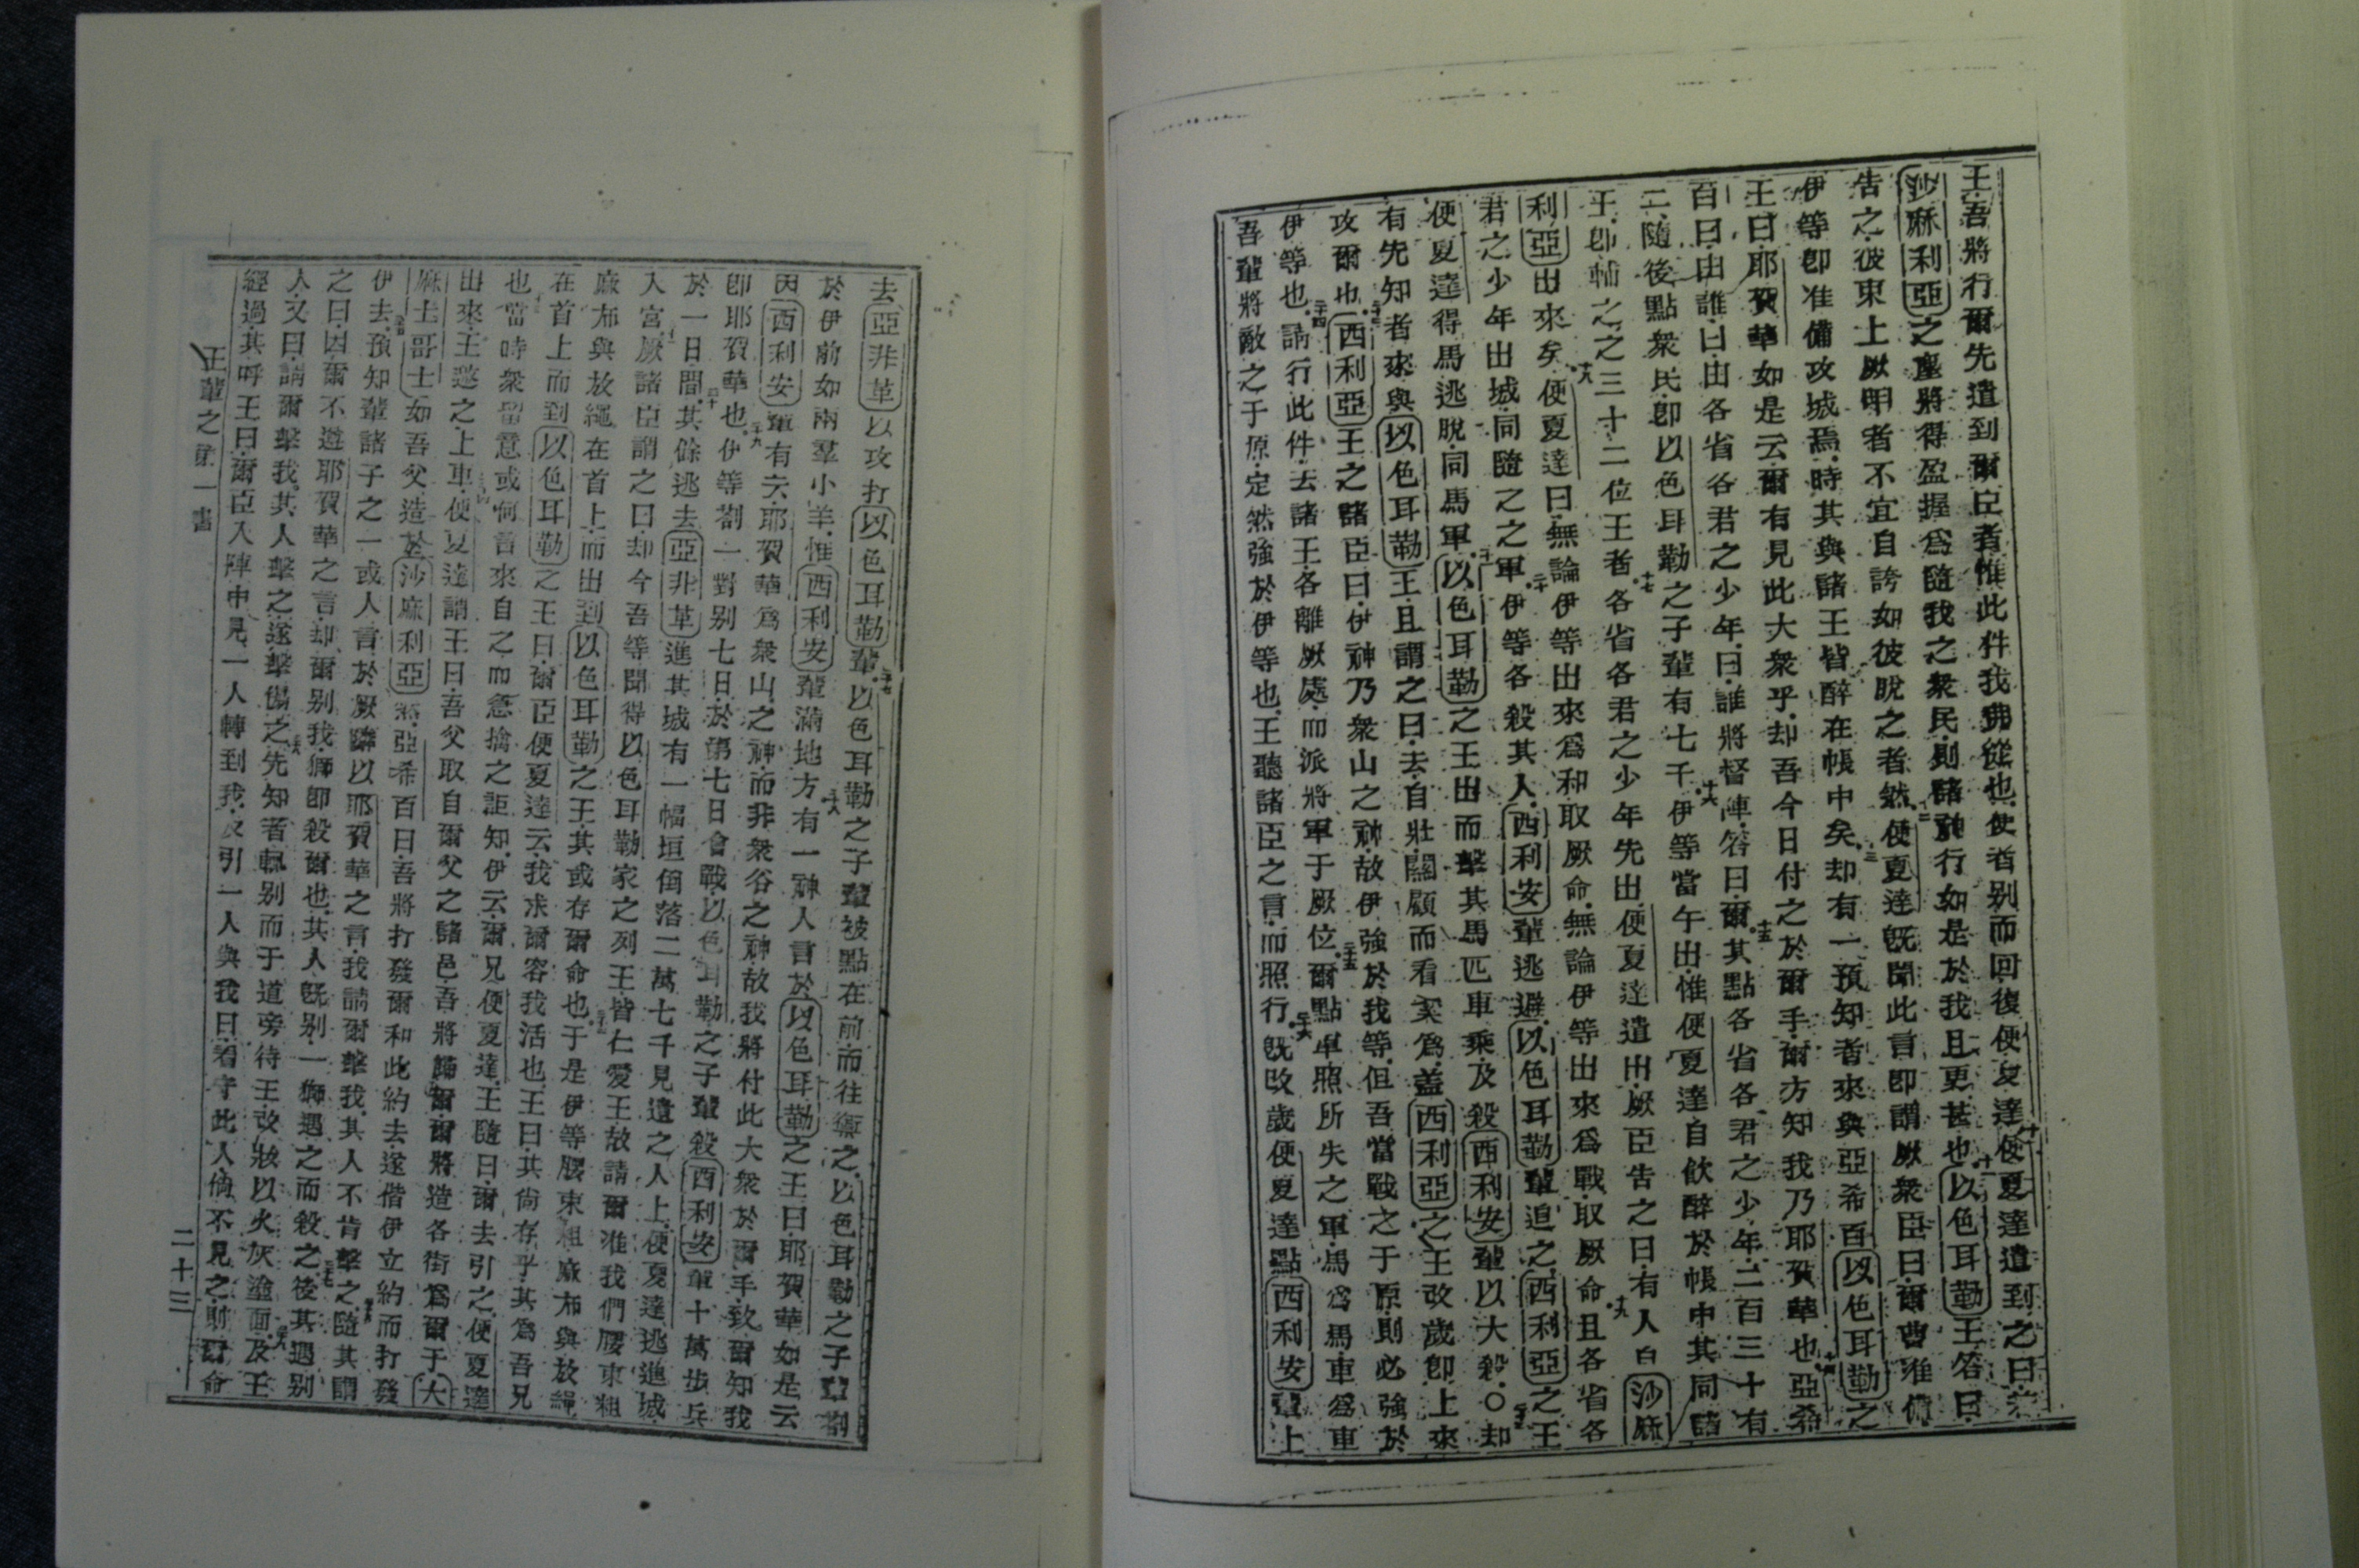 王.吾將行爾先遣到爾臣者.惟此件我弗從也.使者别而回復便夏達.十便夏達遣到之曰.
沙麻利亞之塵將得盈握爲隨我之衆民.則諸神行如是於我且更甚也.十一以色耳勒王答曰.
告之.彼束上厥者不宜自誇如彼脫之者然.十二便夏達旣聞此言卽謂厥衆臣曰.爾曹准備.
伊等卽准備攻城焉.時其與諸王皆醉在帳中矣.十三却有一預知者來與亞希百以色耳勒之
王曰.耶賀華如是云.爾有見此大衆乎.却吾今日付之於爾手.爾方知我乃耶賀華也.十四亞希
百曰.由誰.曰.由各省各君之少年.曰.誰將督陣.答曰.爾.十五其點各省各君之少年.二百三十有
二.隨後點衆民.卽以色耳勒之子輩有七千.十六伊等當午出.惟便夏達自飲醉於帳中其同諸
王.卽輔之之三十二位王者.十七各省各君之少年先出.便夏達遣出.厥臣告之曰.有人自沙麻
利亞出來矣.十八便夏達曰.無論伊等出來爲和取厥命.無論伊等出來爲戰.取厥命.十九且各省各
君之少年出城.同隨之之軍.二十伊等各殺其人.西利安輩逃遁.以色耳勒輩追之.西利亞之王
便夏達得馬逃脫.同馬軍.二十一以色耳勒之王出而擊其馬匹車乘.及殺西利安輩以大殺.○二十二却
有先知者來與以色耳勒王.且謂之曰.去.自壯.關顧而看爲.蓋西利亞之王改歲卽上來
攻爾也.二十三西利亞王之諸臣曰.伊神乃衆山之神.故伊強於我等.但吾當戰之于原.則必強於
伊等也.二十四請行此件.去諸王各離厥處.而派將軍于厥位.二十五爾點軍照所失之軍.馬爲馬.車爲車
吾輩將敵之于原.定然強於伊等也.王聽諸臣之言.而照行.二十六旣改歲便夏達點西利安輩上
去亞非革以攻打以色耳勒輩.二十七以色耳勒之子輩被點在前.而往禦之.以色耳勒之子輩劄
於伊前如兩羣小羊.惟西利安輩滿地方.二十八有一神人言於以色耳勒之王曰.耶賀華如是云
因西利安輩有云.耶賀華爲衆山之神.而非衆谷之神.故我將付此大衆於爾手.致爾知我
卽耶賀華也.二十九伊等劄一對别七日.於第七日會戰.以色耳勒之子輩殺西利安輩十萬步兵
於一日間.三十其餘逃去亞非革.進其城.有一幅垣倒落二萬七千見遺之人上.便夏達逃進城.
入宮.三十一厥諸臣謂之曰.却今吾等聞得以色耳勒家之列王皆仁愛王.故請爾准我們腰束粗
麻布與放繩在首上.而出到以色耳勒之王.其或存爾命也.三十二于是伊等腰束粗麻布與放繩
在首上.而到以色耳勒之王曰.爾臣便夏達云.我求爾容我活也.王曰.其尙存乎.其爲吾兄
也.三十三當時衆留意或何言來自之而急擒之.詎知.伊云.爾兄便夏達.王隨曰.爾去引之.便夏達
出來.王邀之上車.三十四便夏達謂王曰.吾父取自爾父之諸邑.吾將歸爾.爾將造各街爲爾于大
麻士哥士.如吾父造於沙麻利亞然.亞希百曰.吾將打發爾和此約去.遂偕伊立約而打發
伊去.三十五預知輩諸子之一或人言於厥隣以耶賀華之言.我請爾擊我.其人不肯擊之.三十六隨其謂
之曰.因爾不遵耶賀華之言.却爾别我.獅卽殺爾也.其人旣别.一獅遇之而殺之.三十七後其遇别
人.又曰.請爾擊我.其人擊之.遂擊傷之.三十八先知者輒别.而于道旁待王.改妝以火灰塗面.三十九及王
經過.其呼王曰.爾臣入陣中.見一人轉到我.及引一人與我曰.看守此人.倘不見之.則爾命
王輩之第一書 二十三